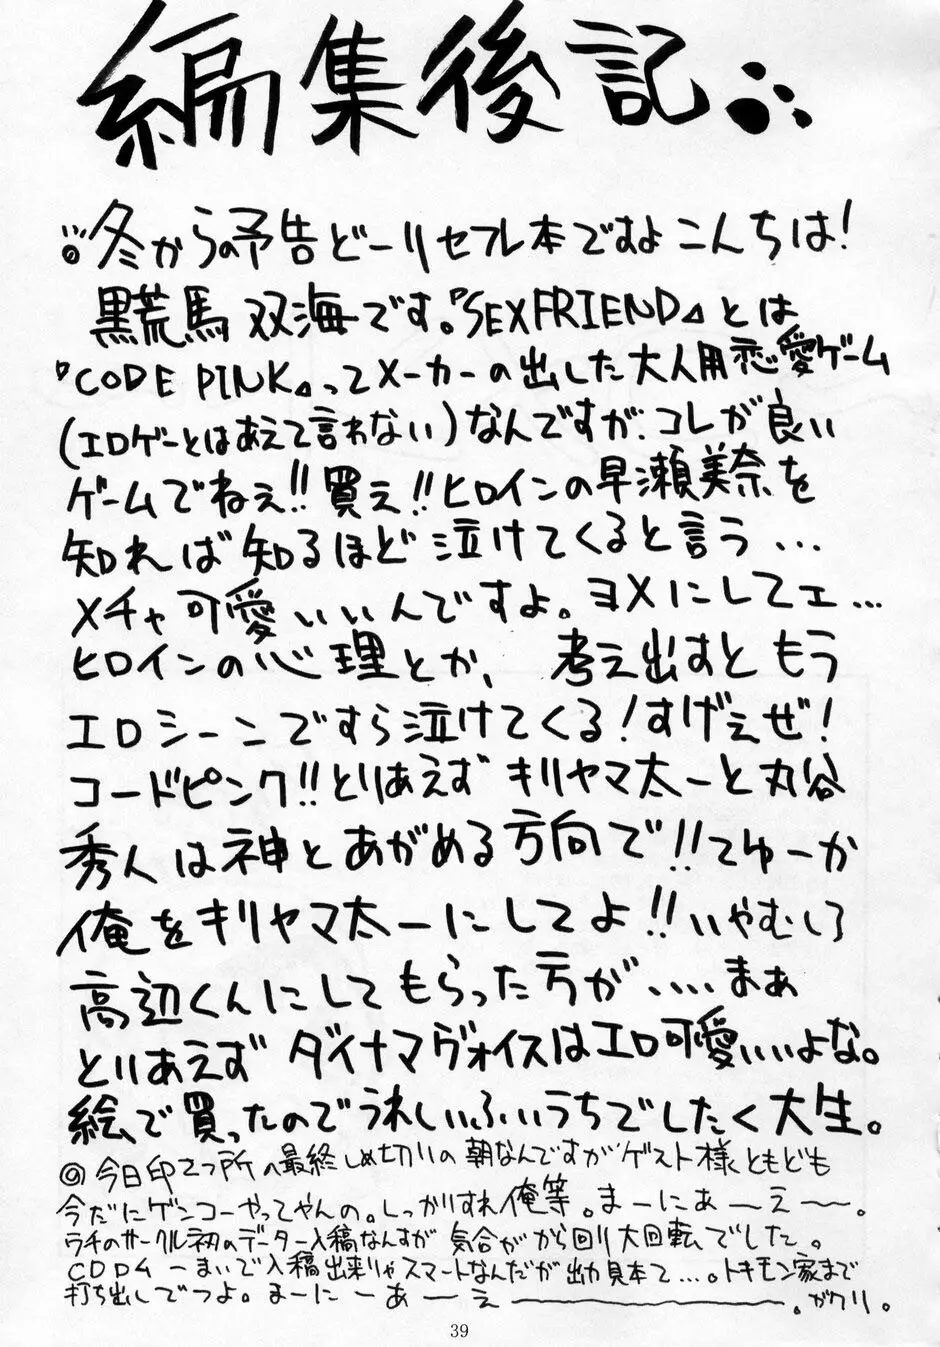 編集後記
◎冬からの予告どーりセフレ本ですよこんちは!
黒荒馬双海です。『SEXFRIEND』とは
『CODE PINK』ってメーカーの出した大人用恋愛ゲーム
(エロゲーとはあえて言わない)なんですが、コレが良い
ゲームでねぇ!!買え!!ヒロインの早瀬美奈を
知れば知るほど泣けてくると言う…
メチャ可愛いいんですよ。ヨメにしてェ…
ヒロインの心理とか、考え出すともう
エロシーンですら泣けてくる!すげぇぜ!
コードピンク!!とりあえずキリヤマ太一と丸谷
秀人は神とあがめる方向で!!てゆーか
俺をキリヤマ太一にしてよ!!いやむしろ
高辺くんにしてもらった方が、、、、まぁ
とりあえずダイナマヴォイスはエロ可愛いいよな。
絵で買ったのでうれしいふいうちでしたく大生。
◎今日印さつ所の最終しめ切りの朝なんですがゲスト様ともども
今だにゲンコーやってやんの。しっかりすれ俺等。まーにぁーえー〜。
ウチのサークル初のデーター入稿なんすが気合がから回り大回転でした。
CD一まいで入稿出来りゃスマートなんだが出力見本で…。トキモン家まで
打ち出しでつよ。まーにーあーえー。ガクリ。
39